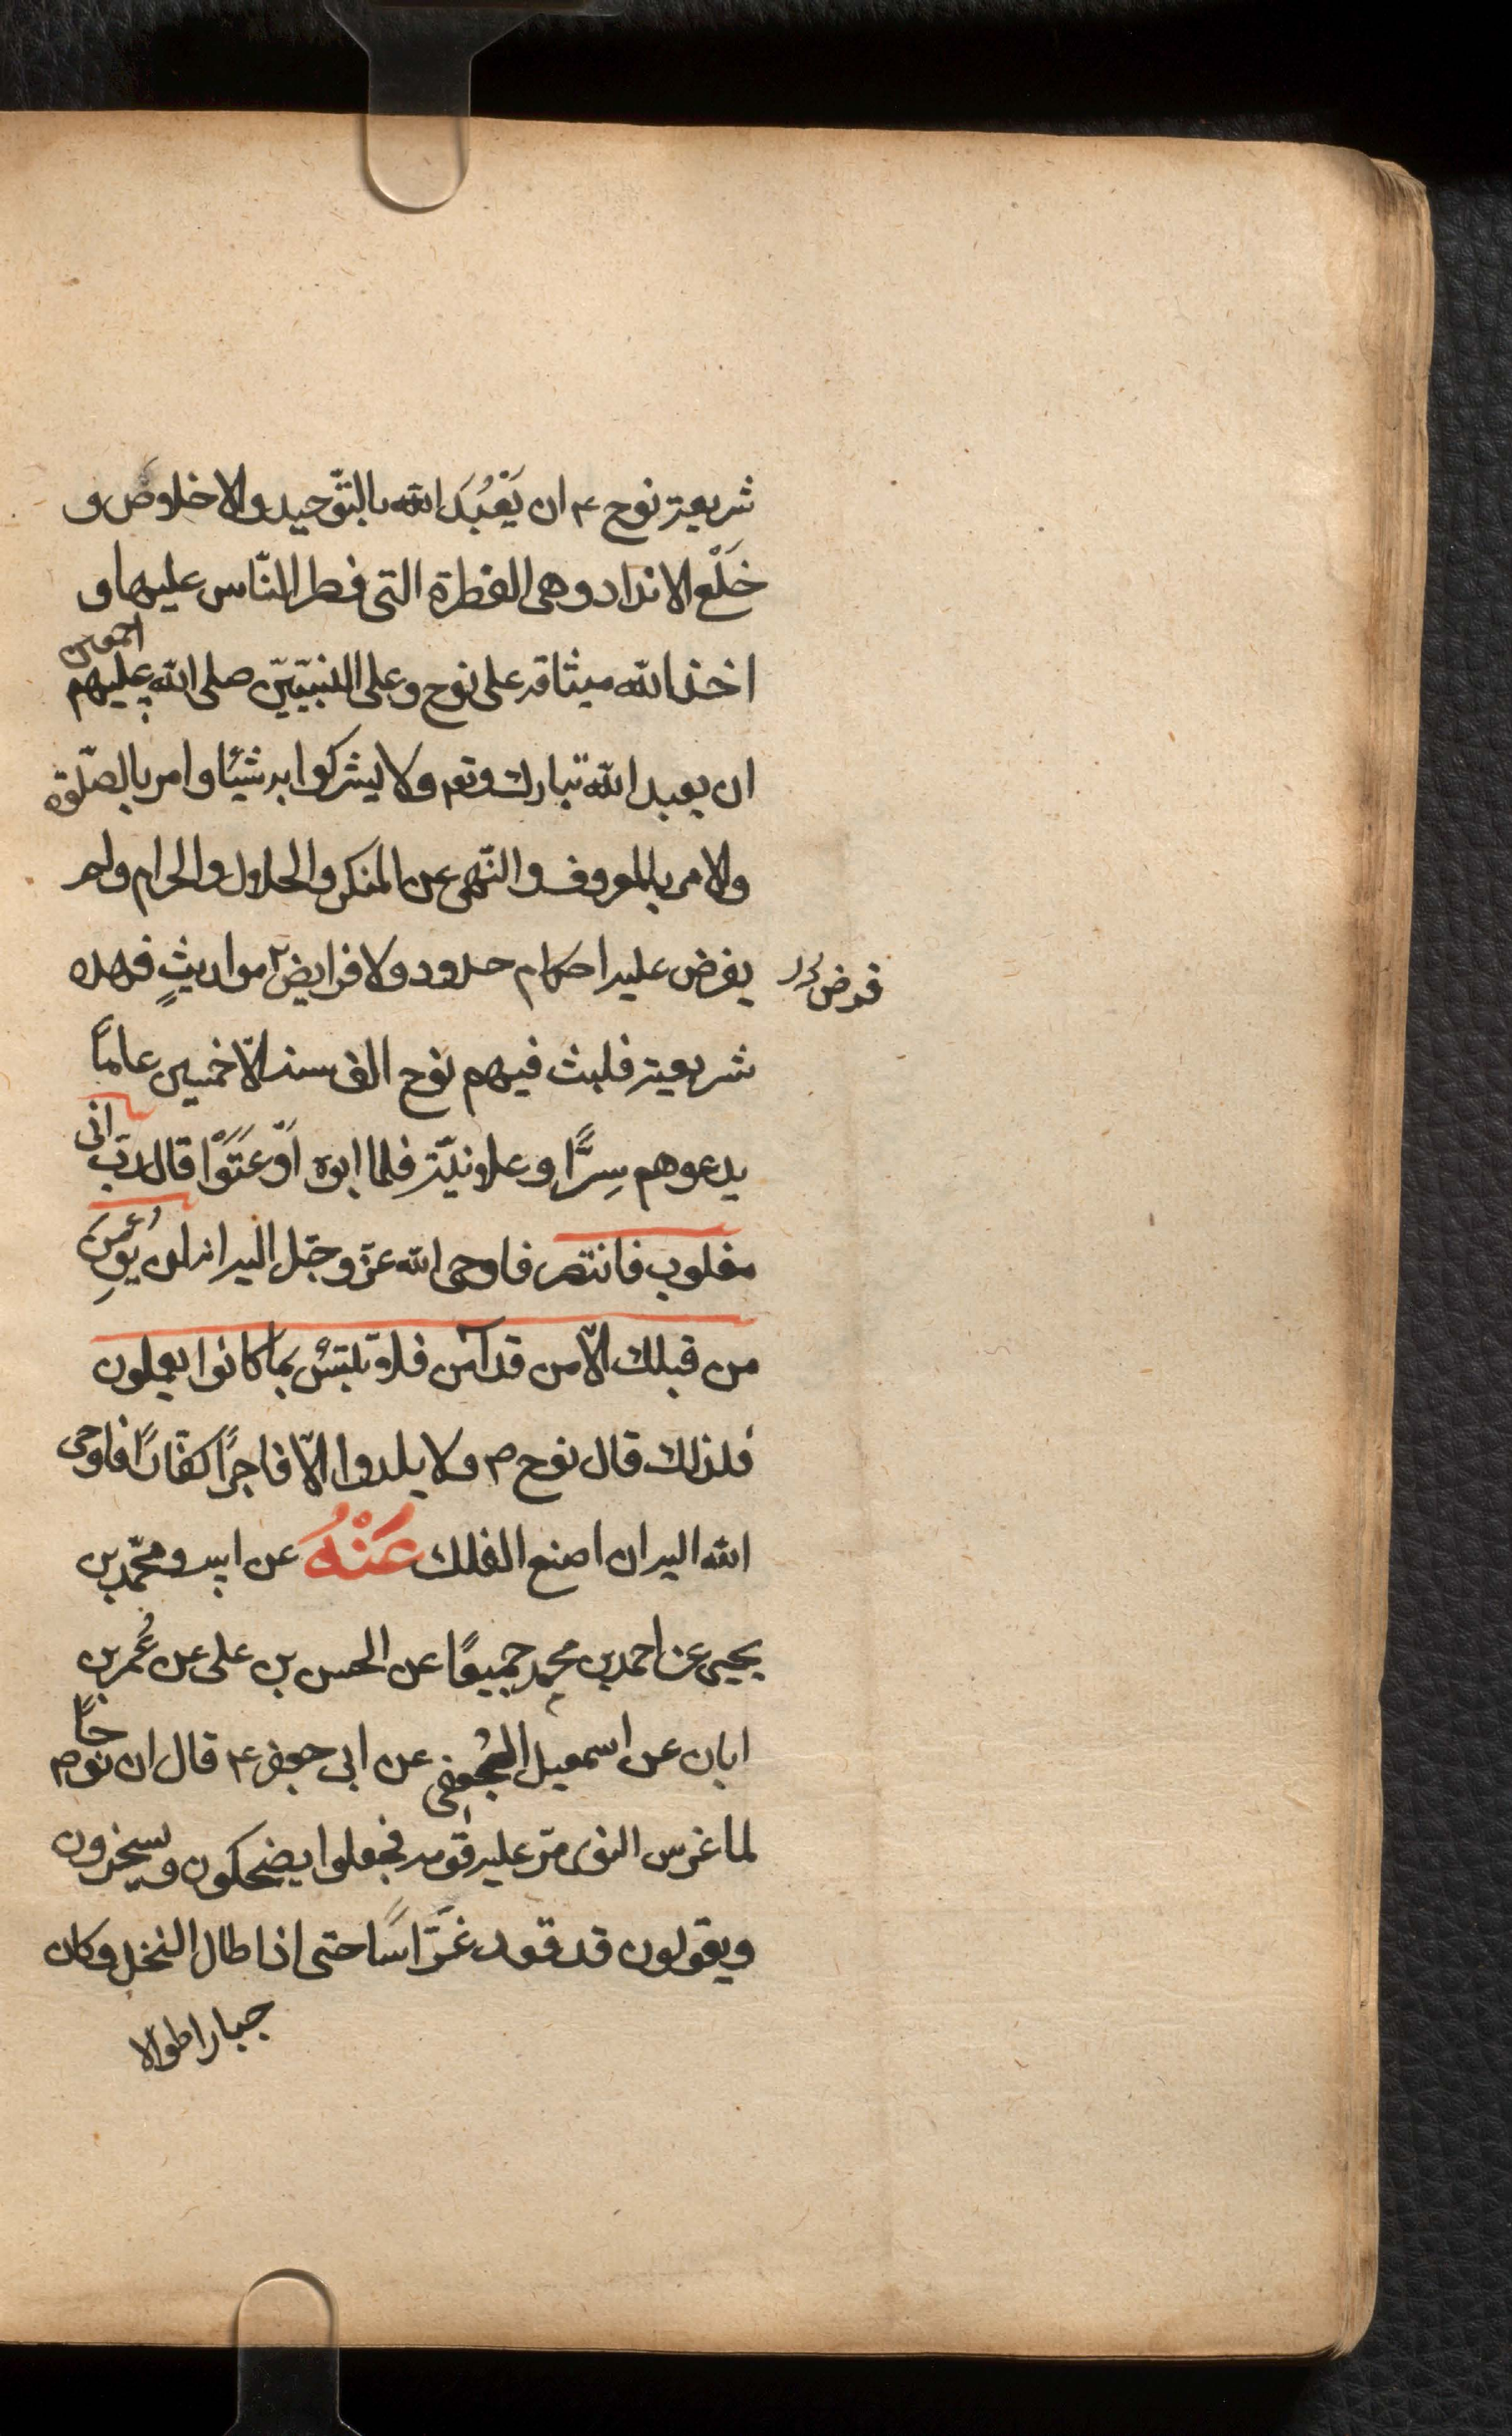 شريعة نوح ع ان يَعْبُدَ الله بالتّوحيد والاخلاص و
خَلْع الانداد وهى الفطرة التى فطر النّاس عليها و
اخذ الله ميثاقه على نوح وعلى النبيّين صلى الله عليهم اجمعين
ان يعبد الله تبارك وتعم ولا يشركوا به شيئا وامر بالصّلوة
والامر بالمعروف والنّهى عن المنكر والحلال والحرام ولم
يفرض عليه احكام حدود ولا فرايض مواريثٍ فهذه
فرض
شريعته فلبث فيهم نوح الف سنة الّا خمسين عامًا
يدعوهم سِرًّا وعلانيّة فلما ابوه اوّ عَتَوْا قال ربّ انى
مغلوب فانتصر فاوحى الله عزّ وجّل اليه انه لن يؤمِن
من قبلك الّا من قد آمن فلا تبتئس بما كانوا يعملون
فلذلك قال نوح م ولا يلدوا الّا فاجرًا كفّارًا فاوحى
الله اليه ان اصنع الفلك عَنْهُ عن ابيه ومحمّد بن
يحيى عن احمد بن محمد جميعًا عن الحسن بن على عن عُمر بن
ابان عن اسمعيل الجُعفى عن ابى جعفر ع قال ان نوحًا م
لما غرس النوى مرّ عليه قومه فجعلوا يضحكون ويسخرون
ويقولون قد قعد غَرَّاسًا حتى اذا طال النخل وكان
جبارا طوالا